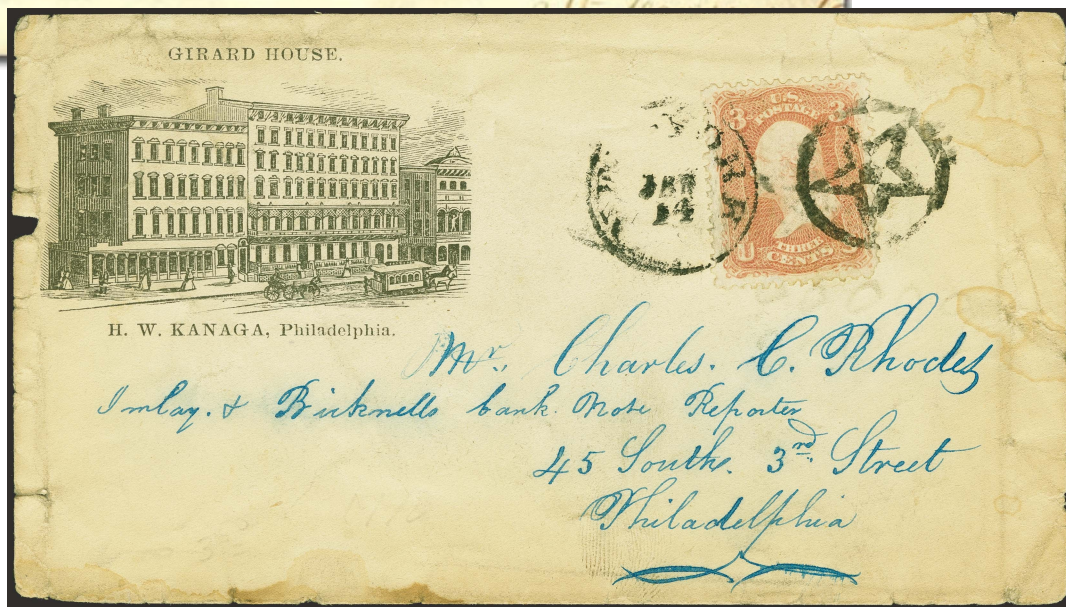 GIRARD HOUSE.
H. W. KANAGA, Philadelphia.
U.S. POSTAGE
3 3
THREE
U CENTS
JAN
14
Mr. Charles. C. Rhodes
Imlay. & Bicknells bank. Note Reporter
45 South. 3rd. Street
Philadelphia